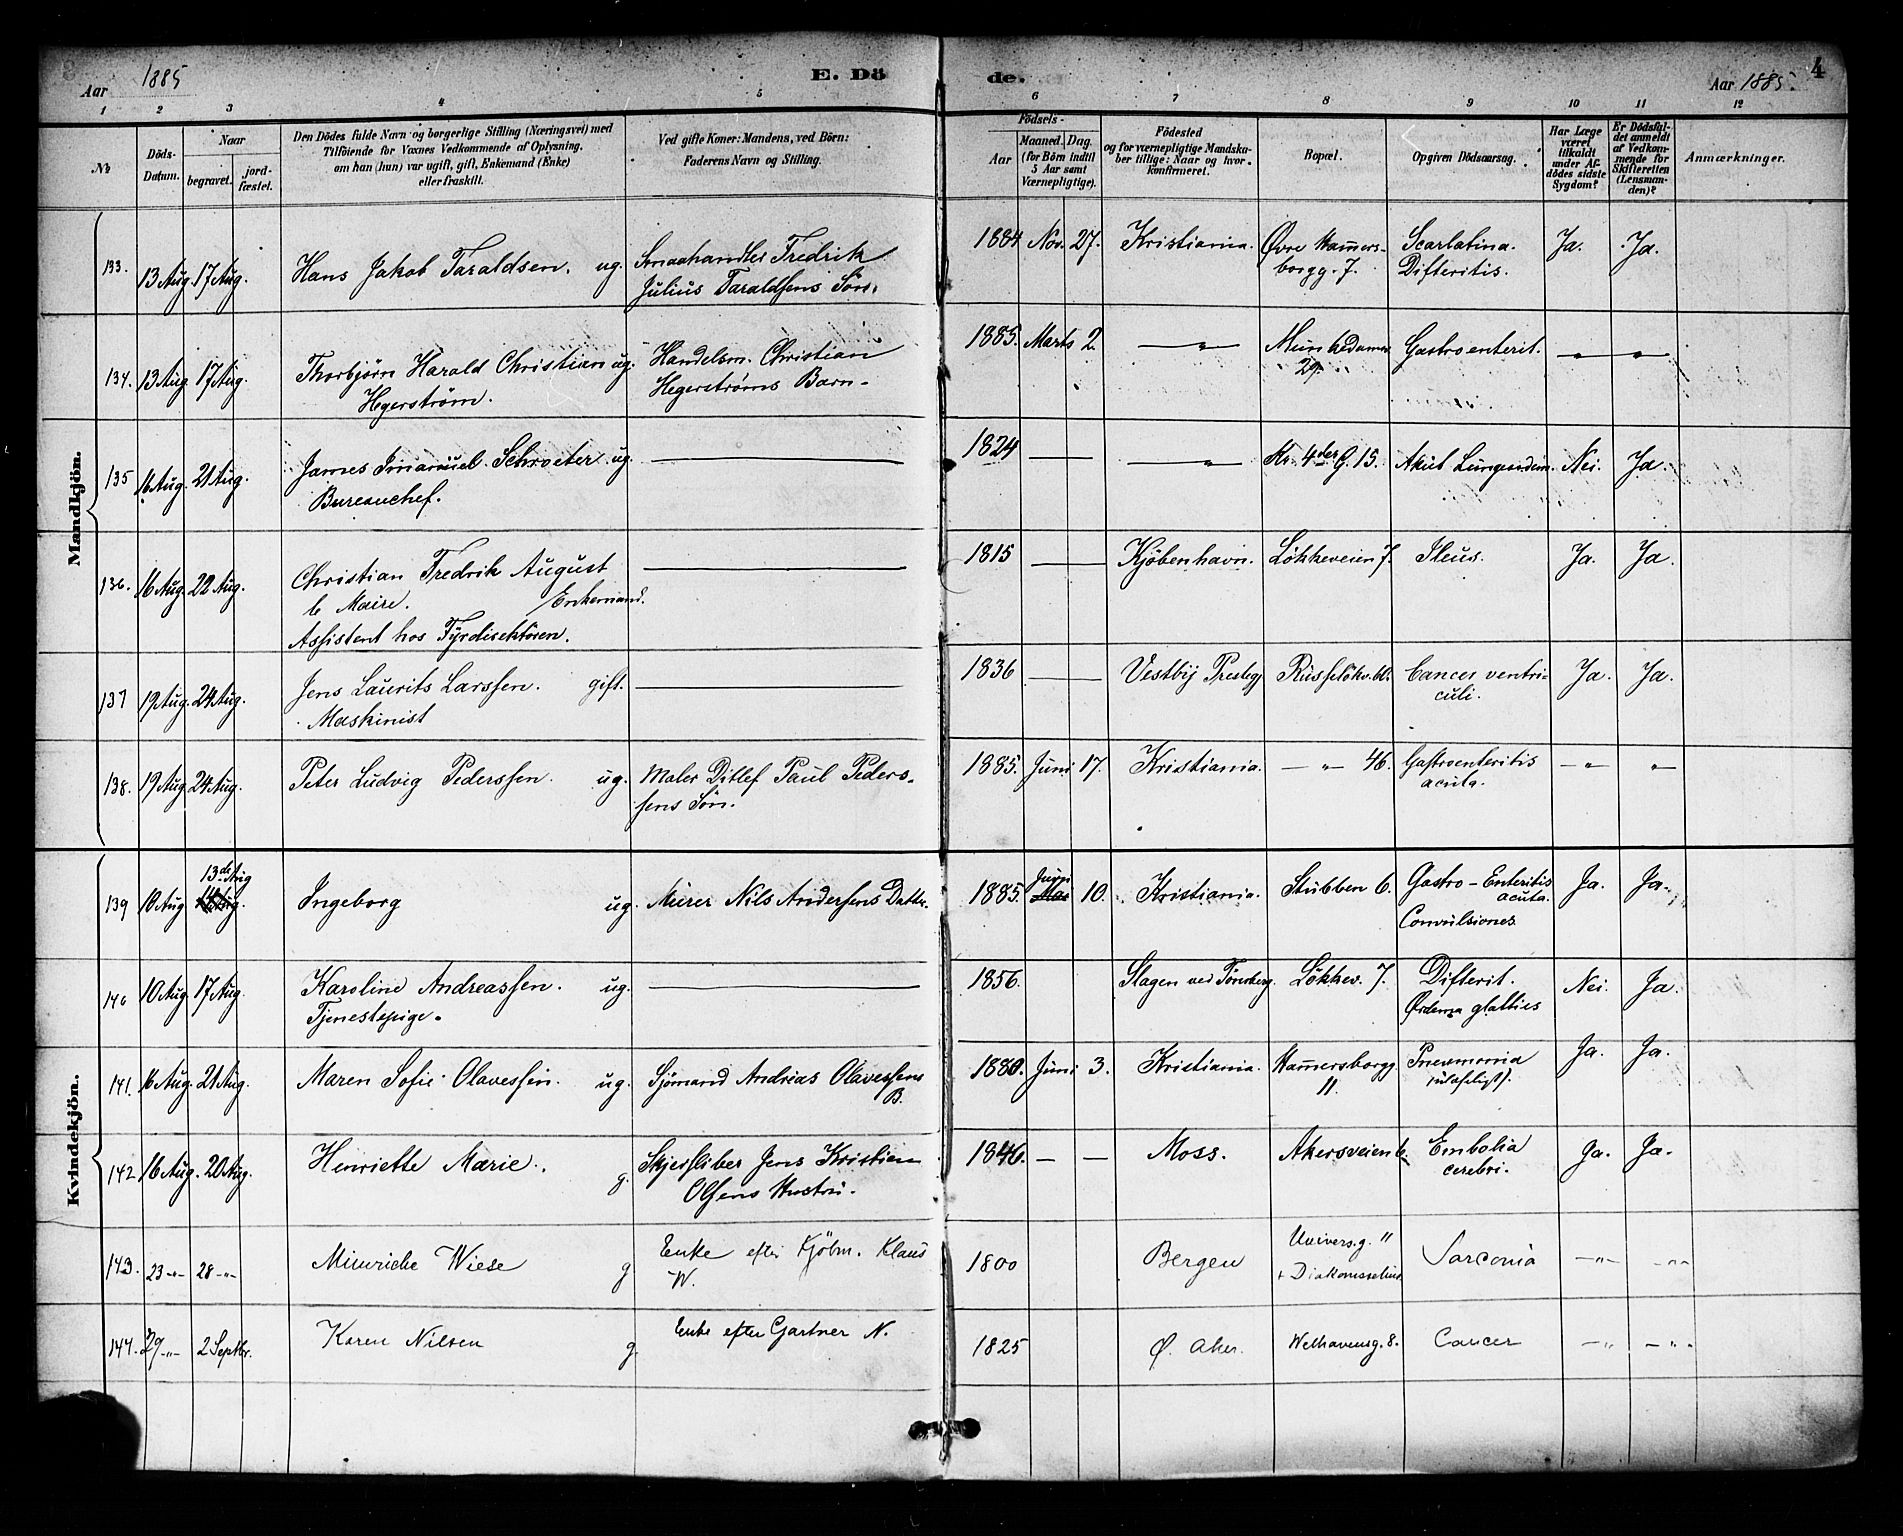 Aar 1885
E. Dö
de.
Aar 1885.
4
1 2 3 4 5 6 7 8 9 10 11 12
No
Döds-Datum.
Naar
begravet.
jord-fæstet.
Den Dödes fulde Navn og borgerlige Stilling (Næringsvei) med
Tilföiende for Voxnes Vedkommende af Oplysning,
om han (hun) var ugift, gift, Enkemand (Enke)
eller fraskilt.
Ved gifte Koner: Mandens, ved Börn:
Faderens Navn og Stilling.
Födsels-
Aar
Maaned. Dag.
(for Börn indtil
5 Aar samt
Værnepligtige).
Födested
og for værnepligtige Mandska-
ber tillige: Naar og hvor
konfirmeret.
Bopæl.
Opgiven Dödsaarsag.
Har Læge
været
tilkaldt
under Af-
dödes sidste
Sygdom?
Er Dödsfal-
det anmeldt
af Vedkom-
mende for
Skifteretten
(Lensman-
den)?
Anmærkninger.
Mandkjön.
133. 13 Aug. 17 Aug. Hans Jakob Taraldsen. ug. Smaahandler Fredrik
Julius Taraldsens Søn. 1884 Nov. 27. Kristiania. Øvre Hamers-
borgg. 7. Scarlatina.
Difteritis. Ja. Ja.
134. 13 Aug. 17 Aug. Thorbjørn Harald Christian ug. Handelsm. Christian
Hegerstrøm. Hegerstrøms Barn. 1885. Marts 2. — " — Munkedamsv
29. Gastroenterit. — " — — " —
135 16 Aug. 21 Aug. James Imanuel Schroeter ug.
Bureauchef. 1824 — " — Kr. 4des G. 15. Akut Lungeødem. Nei. Ja.
136. 16 Aug. 22 Aug. Christian Fredrik August
le Maire. Enkemand.
Assistent hos Fyrdirektøren. 1815 Kjøbenhavn. Løkkeveien 7. Ileus. Ja. Ja.
137 19 Aug. 24 Aug. Jens Laurits Larssen. gift.
Maskinist 1836 Vestby Prestegj Russeløkv. 60. Cancer ventri-
culi. Ja. Ja.
138. 19 Aug 24 Aug. Peter Ludvig Pederssen. ug. Maler Ditlef Paul Peders-
sens Søn. 1885. Juni 17. Kristiania. — " — 46. Gastroenteritis
acuta. — " — "
Kvindekjön.
139 10 Aug 13de Aug Ingeborg ug. Murer Nils Andersens Datter. 1885. Juni Mai 10. Kristiania. Stubben 6. Gastro-Enteritis
acuta.
Convulsiones Ja. Ja.
140 10 Aug. 17 Aug. Karoline Andreassen. ug.
Tjenestepige. 1856. Slagen ved Tønsberg. Løkkev. 7. Difterit.
Ødema glotties Nei. Ja.
141. 16 Aug. 21 Aug. Maren Sofie Olavessen. ug. Sjømand Andreas Olavessens
B. 1880. Juni 3. Kristiania. Hamersborgg.
11. Pneumonia
Ja. Ja.
142 16 Aug. 20 Aug. Henriette Marie. g. Skjærsliber Jens Kristian
Olsens Hustru. 1846. — — Moss. Akersveien 6. Embolia
cerebri. Ja. Ja.
143. 23 -"- 28 -"- Minriche Wiese g Enke efter Kjøbm. Klaus
W. 1800 Bergen Univers.g. 11
+ Diakonissehus Sarcoma -"- -"-
144. 29 -"- 2 Septbr. Karen Nilsen g. Enke efter Gartner N. 1825 Ø. Aker. Welhavensg. 8. Cancer -"- -"-